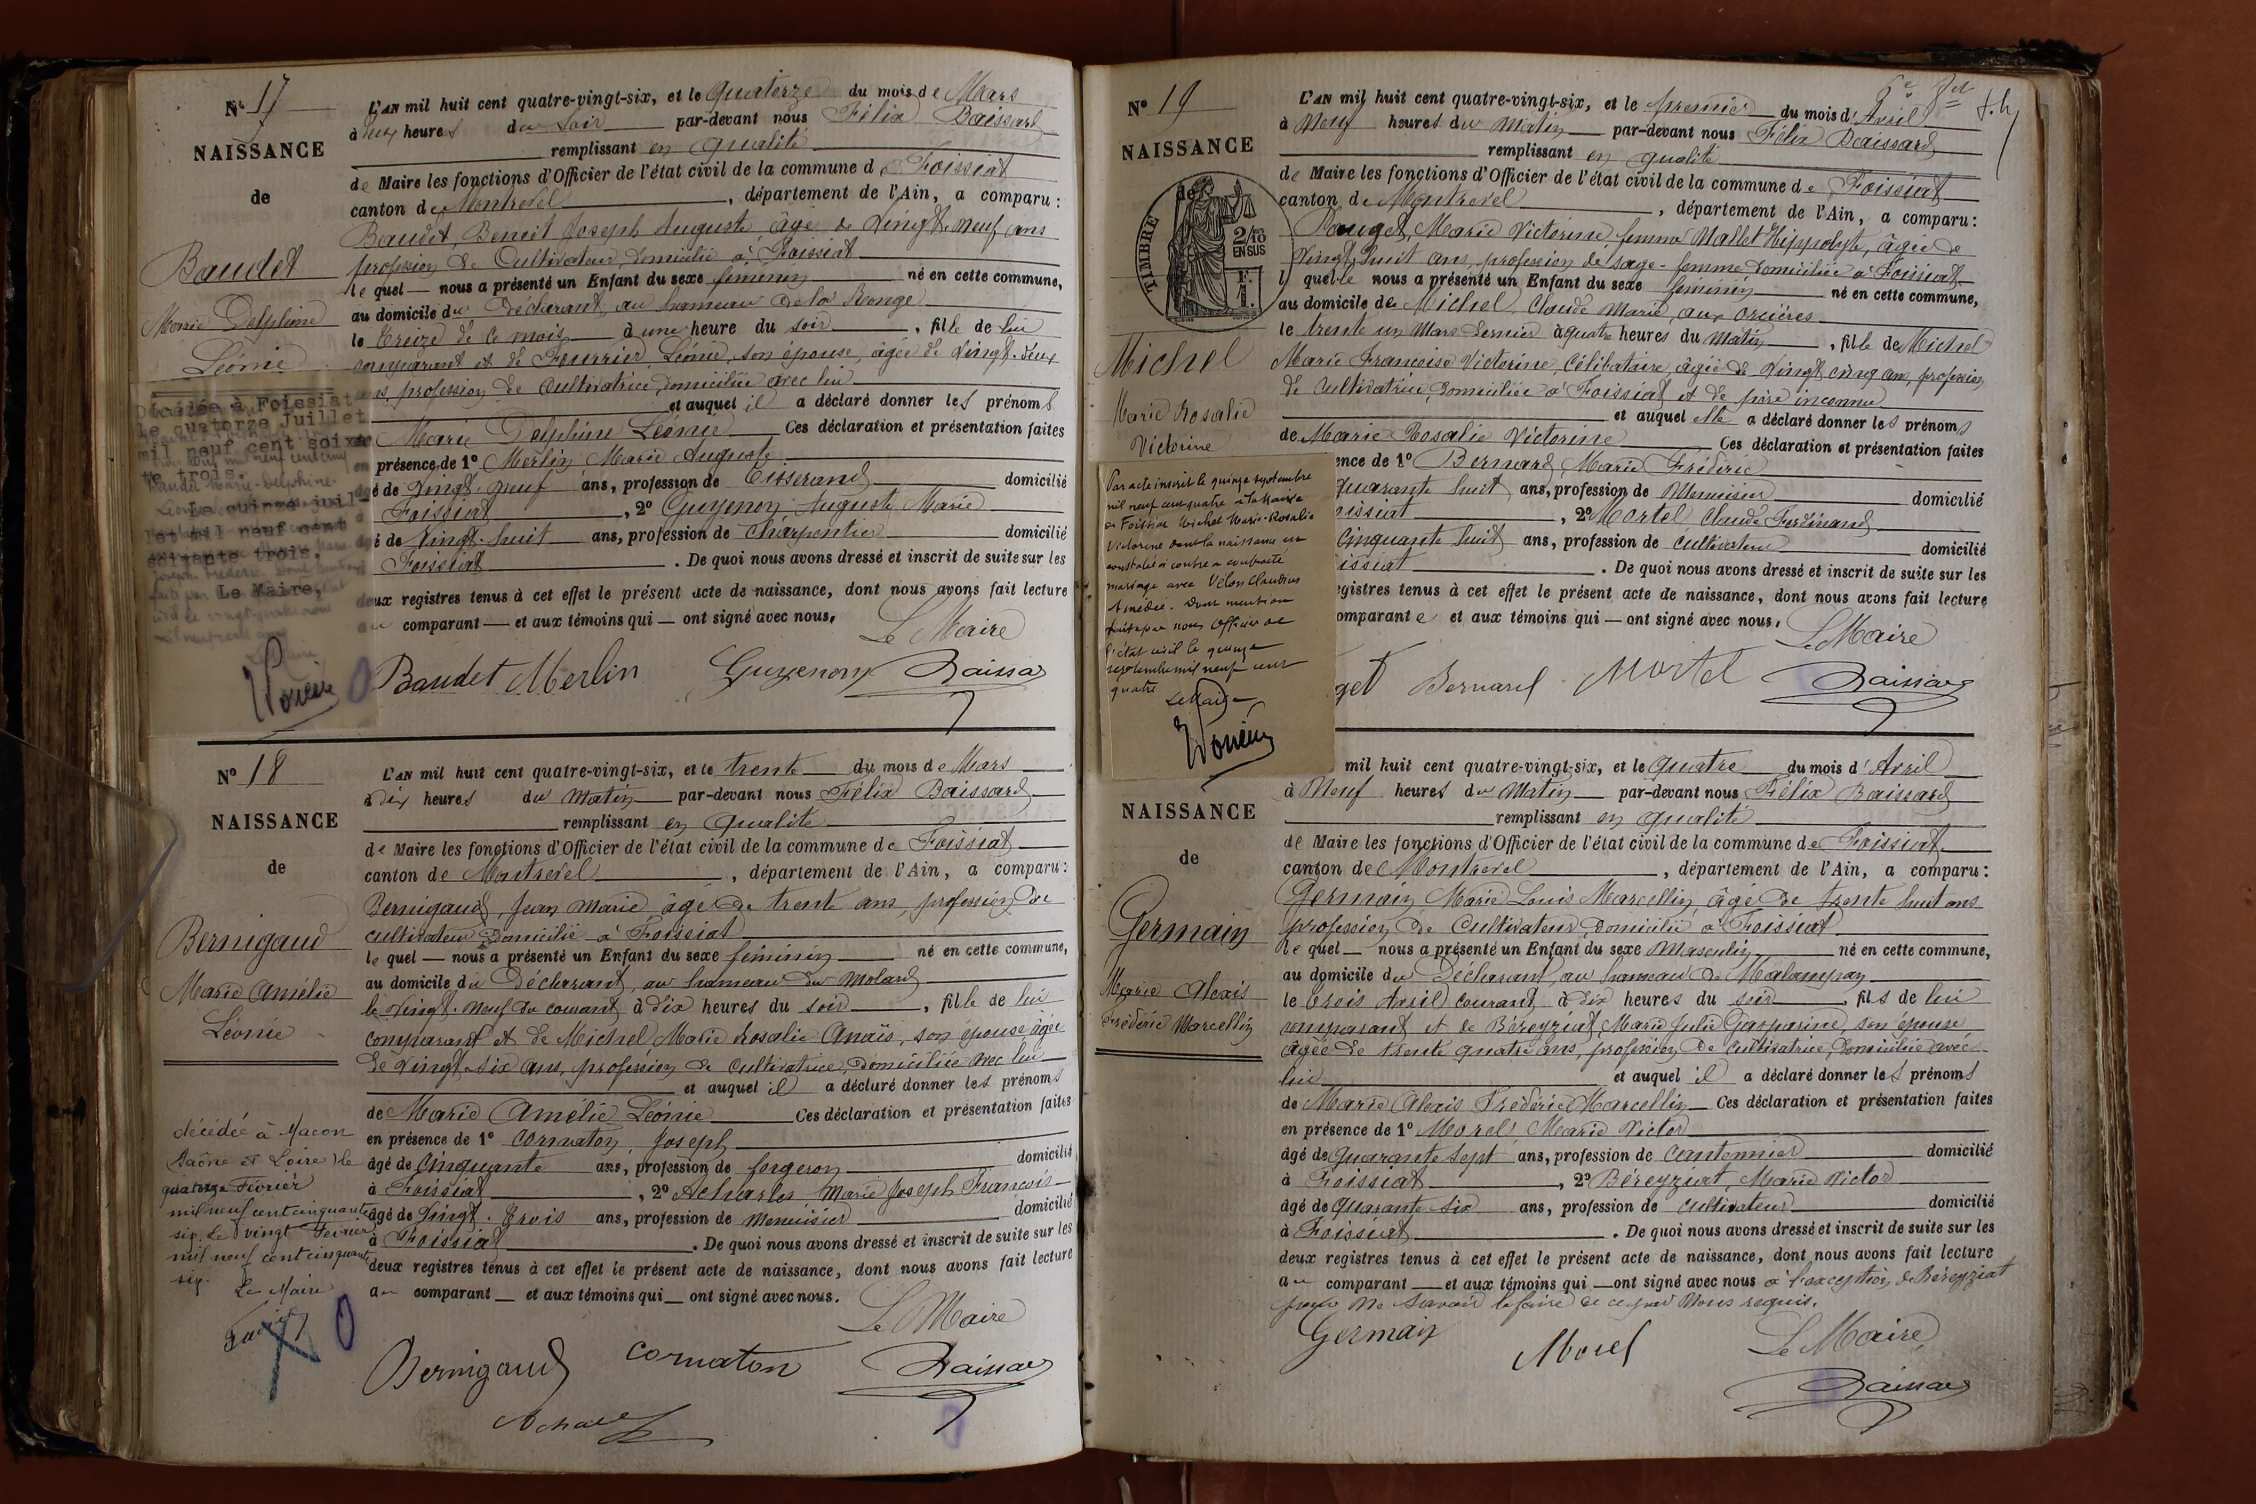 N° 17
NAISSANCE
de
Baudet
Marie Delphine
Léonie
Décédée à Foissiat
le quatorze Juillet
mil neuf cent soixan
te trois.
Le quinze juil-
let mil neuf cent
soixante trois.
Le Maire,
L'AN mil huit cent quatre-vingt-six, et le quatorze du mois de Mars
à heures du soir par-devant nous Félix Baissard
remplissant en qualité
de Maire les fonctions d'Officier de l'état civil de la commune de Foissiat
canton de Montrevel, département de l'Ain, a comparu:
Baudet, Benoit Joseph Auguste âgé de vingt-neuf ans
profession de Cultivateur, domicilié à Foissiat
le quel — nous a présenté un Enfant du sexe féminin né en cette commune,
au domicile du Déclarant, au hameau de la
le treize de ce mois à une heure du soir, fille de lui
comparant et de Fourrier Léonie, son épouse, âgée de vingt-deux
ans, profession de cultivatrice, domiciliée avec lui
et auquel il a déclaré donner les prénoms
de Marie Delphine Léonie Ces déclaration et présentation faites
en présence de 1° Merlin Marie Auguste
âgé de vingt-neuf ans, profession de Tisserand domicilié
Foissiat, 2° Guyenon Auguste Marie
âgé de vingt-huit ans, profession de Charpentier domicilié
Foissiat. De quoi nous avons dressé et inscrit de suite sur les
deux registres tenus à cet effet le présent acte de naissance, dont nous avons fait lecture
au comparant — et aux témoins qui — ont signé avec nous.
Le Maire
Baudet Merlin Guyenon Baissard
N° 18
NAISSANCE
de
Bernigaud
Marie Amélie
Léonie
décédée à Macon
Saône et Loire le
quatorze Février
mil neuf cent cinquante
six. Le vingt Février
mil neuf cent cinquante
six.
Le Maire
L'AN mil huit cent quatre-vingt-six, et le trente du mois de Mars
à dix heures du matin par-devant nous Félix Baissard
remplissant en qualité
de Maire les fonctions d'Officier de l'état civil de la commune de Foissiat
canton de Montrevel, département de l'Ain, a comparu:
Bernigaud, Jean Marie âgé de trente ans, profession de
cultivateur domicilié à Foissiat
le quel — nous a présenté un Enfant du sexe féminin né en cette commune,
au domicile du Déclarant, au hameau du Molard
le vingt-neuf du courant à dix heures du soir, fille de lui
comparant et de Michel Marie Rosalie Anaïs, son épouse âgée
de vingt-six ans, profession de cultivatrice, domiciliée avec lui
et auquel il a déclaré donner les prénoms
de Marie Amélie Léonie Ces déclaration et présentation faites
en présence de 1° Cornaton, Joseph
âgé de cinquante ans, profession de forgeron domicilié
à Foissiat, 2° Acharles Marie Joseph François
âgé de vingt-trois ans, profession de Menuisier domicilié
à Foissiat. De quoi nous avons dressé et inscrit de suite sur les
deux registres tenus à cet effet le présent acte de naissance, dont nous avons fait lecture
au comparant — et aux témoins qui — ont signé avec nous.
Le Maire
Bernigaud Cornaton Baissard
N° 19
NAISSANCE
de
TIMBRE
2/10
EN SUS
Michel
Marie Rosalie
Victorine
Par acte inscrit le quinze septembre
mil neuf cent quatre à la Mairie
de Foissiat Michel Marie-Rosalie
Victorine dont la naissance est
constatée ci contre a contracté
mariage avec Velon Claudius
Amédée. Dont mention
faite par nous Officier de
l'état civil le quinze
septembre mil neuf cent
quatre
Le Maire
L'AN mil huit cent quatre-vingt-six, et le premier du mois d'Avril
à Neuf heures du Matin par-devant nous Félix Baissard
remplissant en qualité
de Maire les fonctions d'Officier de l'état civil de la commune de Foissiat
canton de Montrevel, département de l'Ain, a comparu:
Pauget, Marie Victorine, femme Mallet Hippolyte, âgée de
vingt-huit ans, profession de sage-femme, domiciliée à Foissiat
la quelle nous a présenté un Enfant du sexe féminin né en cette commune,
au domicile de Michel Claude Marie, aux
le trente un Mars dernier à quatre heures du matin, fille de Michel
Marie Françoise Victorine, Célibataire, âgée de vingt cinq ans, profession
de cultivatrice, domiciliée à Foissiat et de père inconnu
et auquel elle a déclaré donner les prénoms
de Marie Rosalie Victorine Ces déclaration et présentation faites
ence de 1° Bernard Marie Frédéric
quarante huit ans, profession de Menuisier domicilié
oissiat, 2° Mortel Claude Ferdinand
cinquante huit ans, profession de cultivateur domicilié
issiat. De quoi nous avons dressé et inscrit de suite sur les
egistres tenus à cet effet le présent acte de naissance, dont nous avons fait lecture
omparante et aux témoins qui — ont signé avec nous.
Le Maire
get Bernard Mortel Baissard
NAISSANCE
de
Germain
Marie Alexis
Frédéric Marcellin
mil huit cent quatre-vingt-six, et le quatre du mois d'Avril
à Neuf heures du Matin par-devant nous Félix Baissard
remplissant en qualité
de Maire les fonctions d'Officier de l'état civil de la commune de Foissiat
canton de Montrevel, département de l'Ain, a comparu:
Germain Marie Louis Marcellin âgé de trente huit ans
profession de Cultivateur domicilié à Foissiat
le quel — nous a présenté un Enfant du sexe Masculin né en cette commune,
au domicile du Déclarant, au hameau de
le trois Avril courant à dix heures du soir, fils de lui
comparant et de Béreyziat Marie Julie Gasparine, son épouse
âgée de trente quatre ans, profession de cultivatrice, domiciliée avec
lui et auquel il a déclaré donner les prénoms
de Marie Alexis Frédéric Marcellin Ces déclaration et présentation faites
en présence de 1° Morel Marie Victor
âgé de quarante sept ans, profession de cantonnier domicilié
à Foissiat, 2° Béreyziat, Marie Victor
âgé de quarante six ans, profession de cultivateur domicilié
à Foissiat. De quoi nous avons dressé et inscrit de suite sur les
deux registres tenus à cet effet le présent acte de naissance, dont nous avons fait lecture
au comparant — et aux témoins qui — ont signé avec nous à l'exception de Béreyziat
pour ne savoir le faire de ce par Nous requis.
Germain Morel Le Maire
Baissard